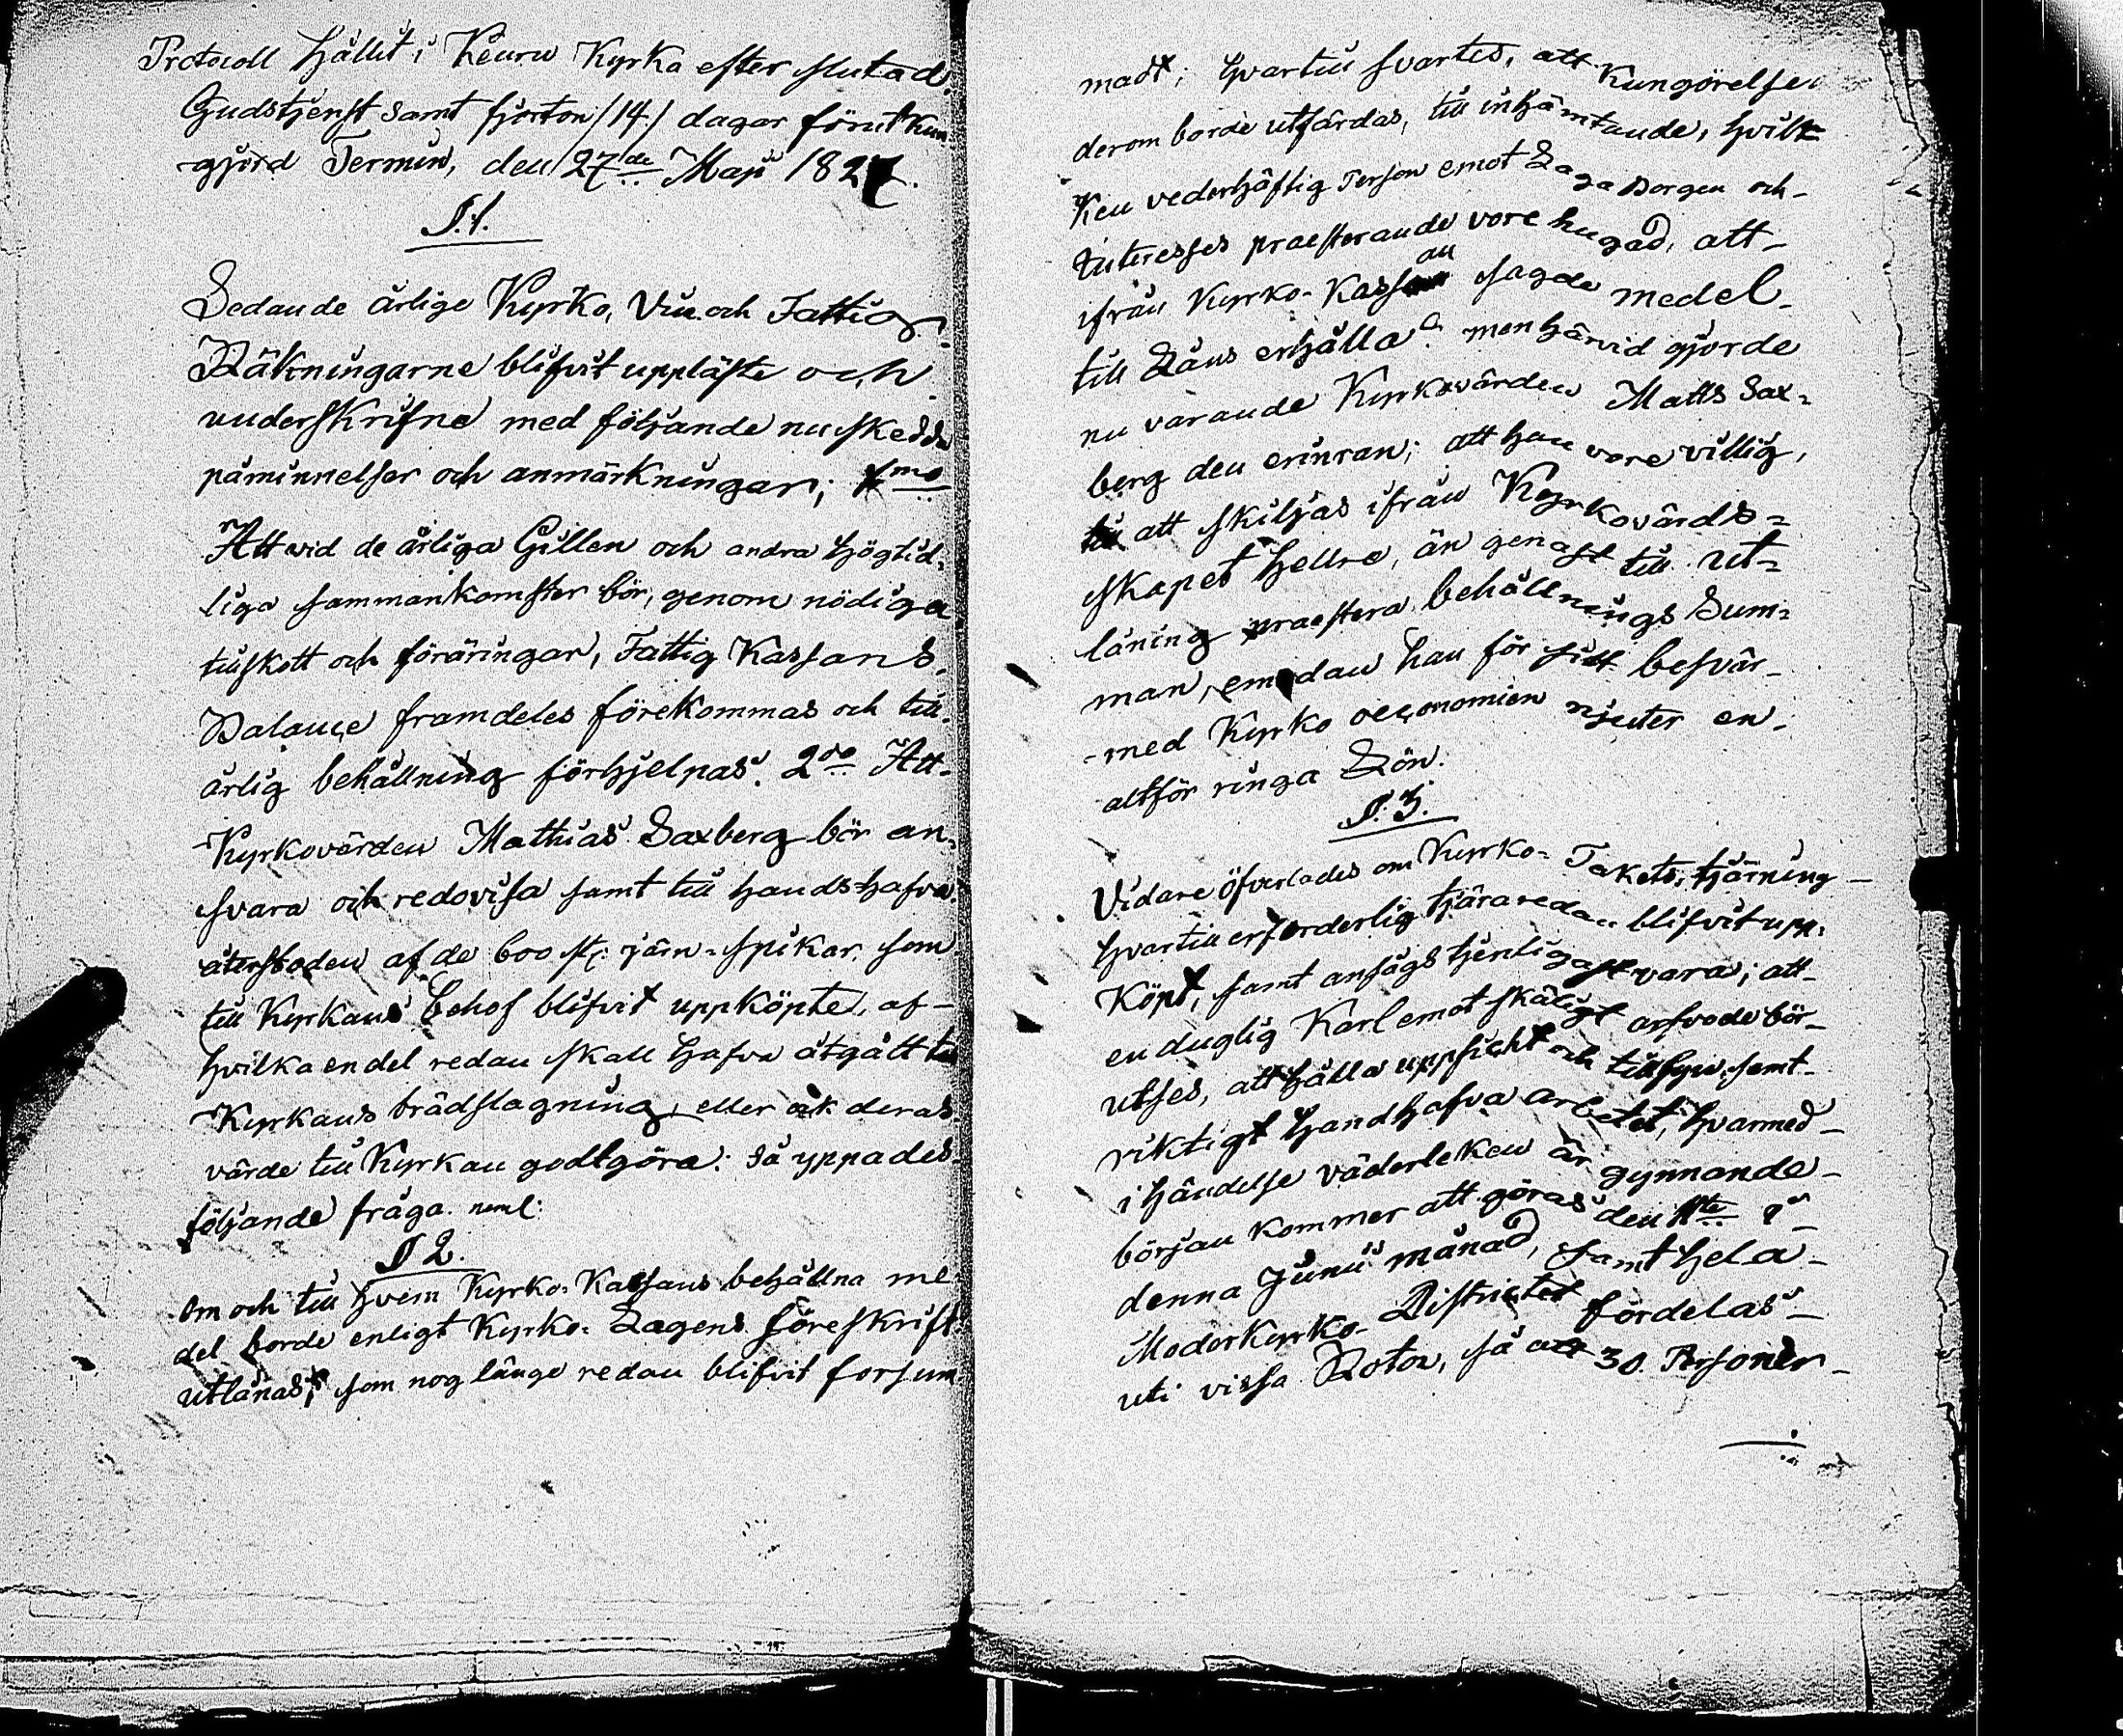 Protocoll hållit i Keuru Kyrka efter slutad
Gudstjenst samt fjorton /14/ dagar förut kun
gjord Termin, den 27de Maji 1827.
§.1.
Sedan de årlige Kyrko, Vin och Fattig
Räkningarne blifvit uppläste och
underskrifne med följande nu skedde
påminnelser och anmärkningar; 1mo
Att vid de årliga Gillen och andra högtid-
liga sammankomster bör, genom nödiga
tillskott och föräringar, Fattig Kassans
Balance framdeles förekommas och till
årlig behållning förhjelpas. 2do Att
Kyrkovärden Mathias Saxberg bör an-
svara och redovisa samt till hands hafva
återstoden af de 600 st: järn-spikar som
till Kyrkans behof blifvit uppköpte, af
hvilka en del redan skall hafva åtgått till
Kyrkans brädslagning, eller ock deras
värde till Kyrkan godtgöra: så yppades
följande fråga neml:
§ 2.
Om och till hvem Kyrko-Kassans behållna me-
del borde enligt Kyrko-Lagens föreskrift
utlånas, som nog länge redan blifvit försum
madt; hvartill svartes, att Kungörelsen
derom borde utfärdas, till inhämtande, hvilk
Ken vederhäftig Person emot Laga Borgen och
Interesses praesterande vore hugad, att
ifrån Kyrko-Kassan sagde medel
till Låns erhålla. men härvid gjorde
nu varande Kyrkovärden Matts Sax-
berg den erinran; att han vore villig,
att skiljas ifrån Kyrkovärds-
skapet hellre, än genast till ut-
låning praestera behållnings Sum-
man, emedan han för sitt besvär
med Kyrko oeconomien njuter en
altför ringa Lön.
§.3.
Vidare öfverlades om Kyrko-Takets tjärning
hvartill erforderlig tjära redan blifvit upp-
Köpt, samt ansågs tjenligast vara; att
en duglig Karl emot skäligt arfvode bör
utses, att hålla uppsicht och tillsyn, samt
riktigt handhafva arbetet, hvarmed
i händelse väderleken är gynnande
början kommer att göras den 11te i
denna Junii månad, samt hela
Moderkyrko-Districtet fördelas
uti vissa Rotor, så att 30 Personer